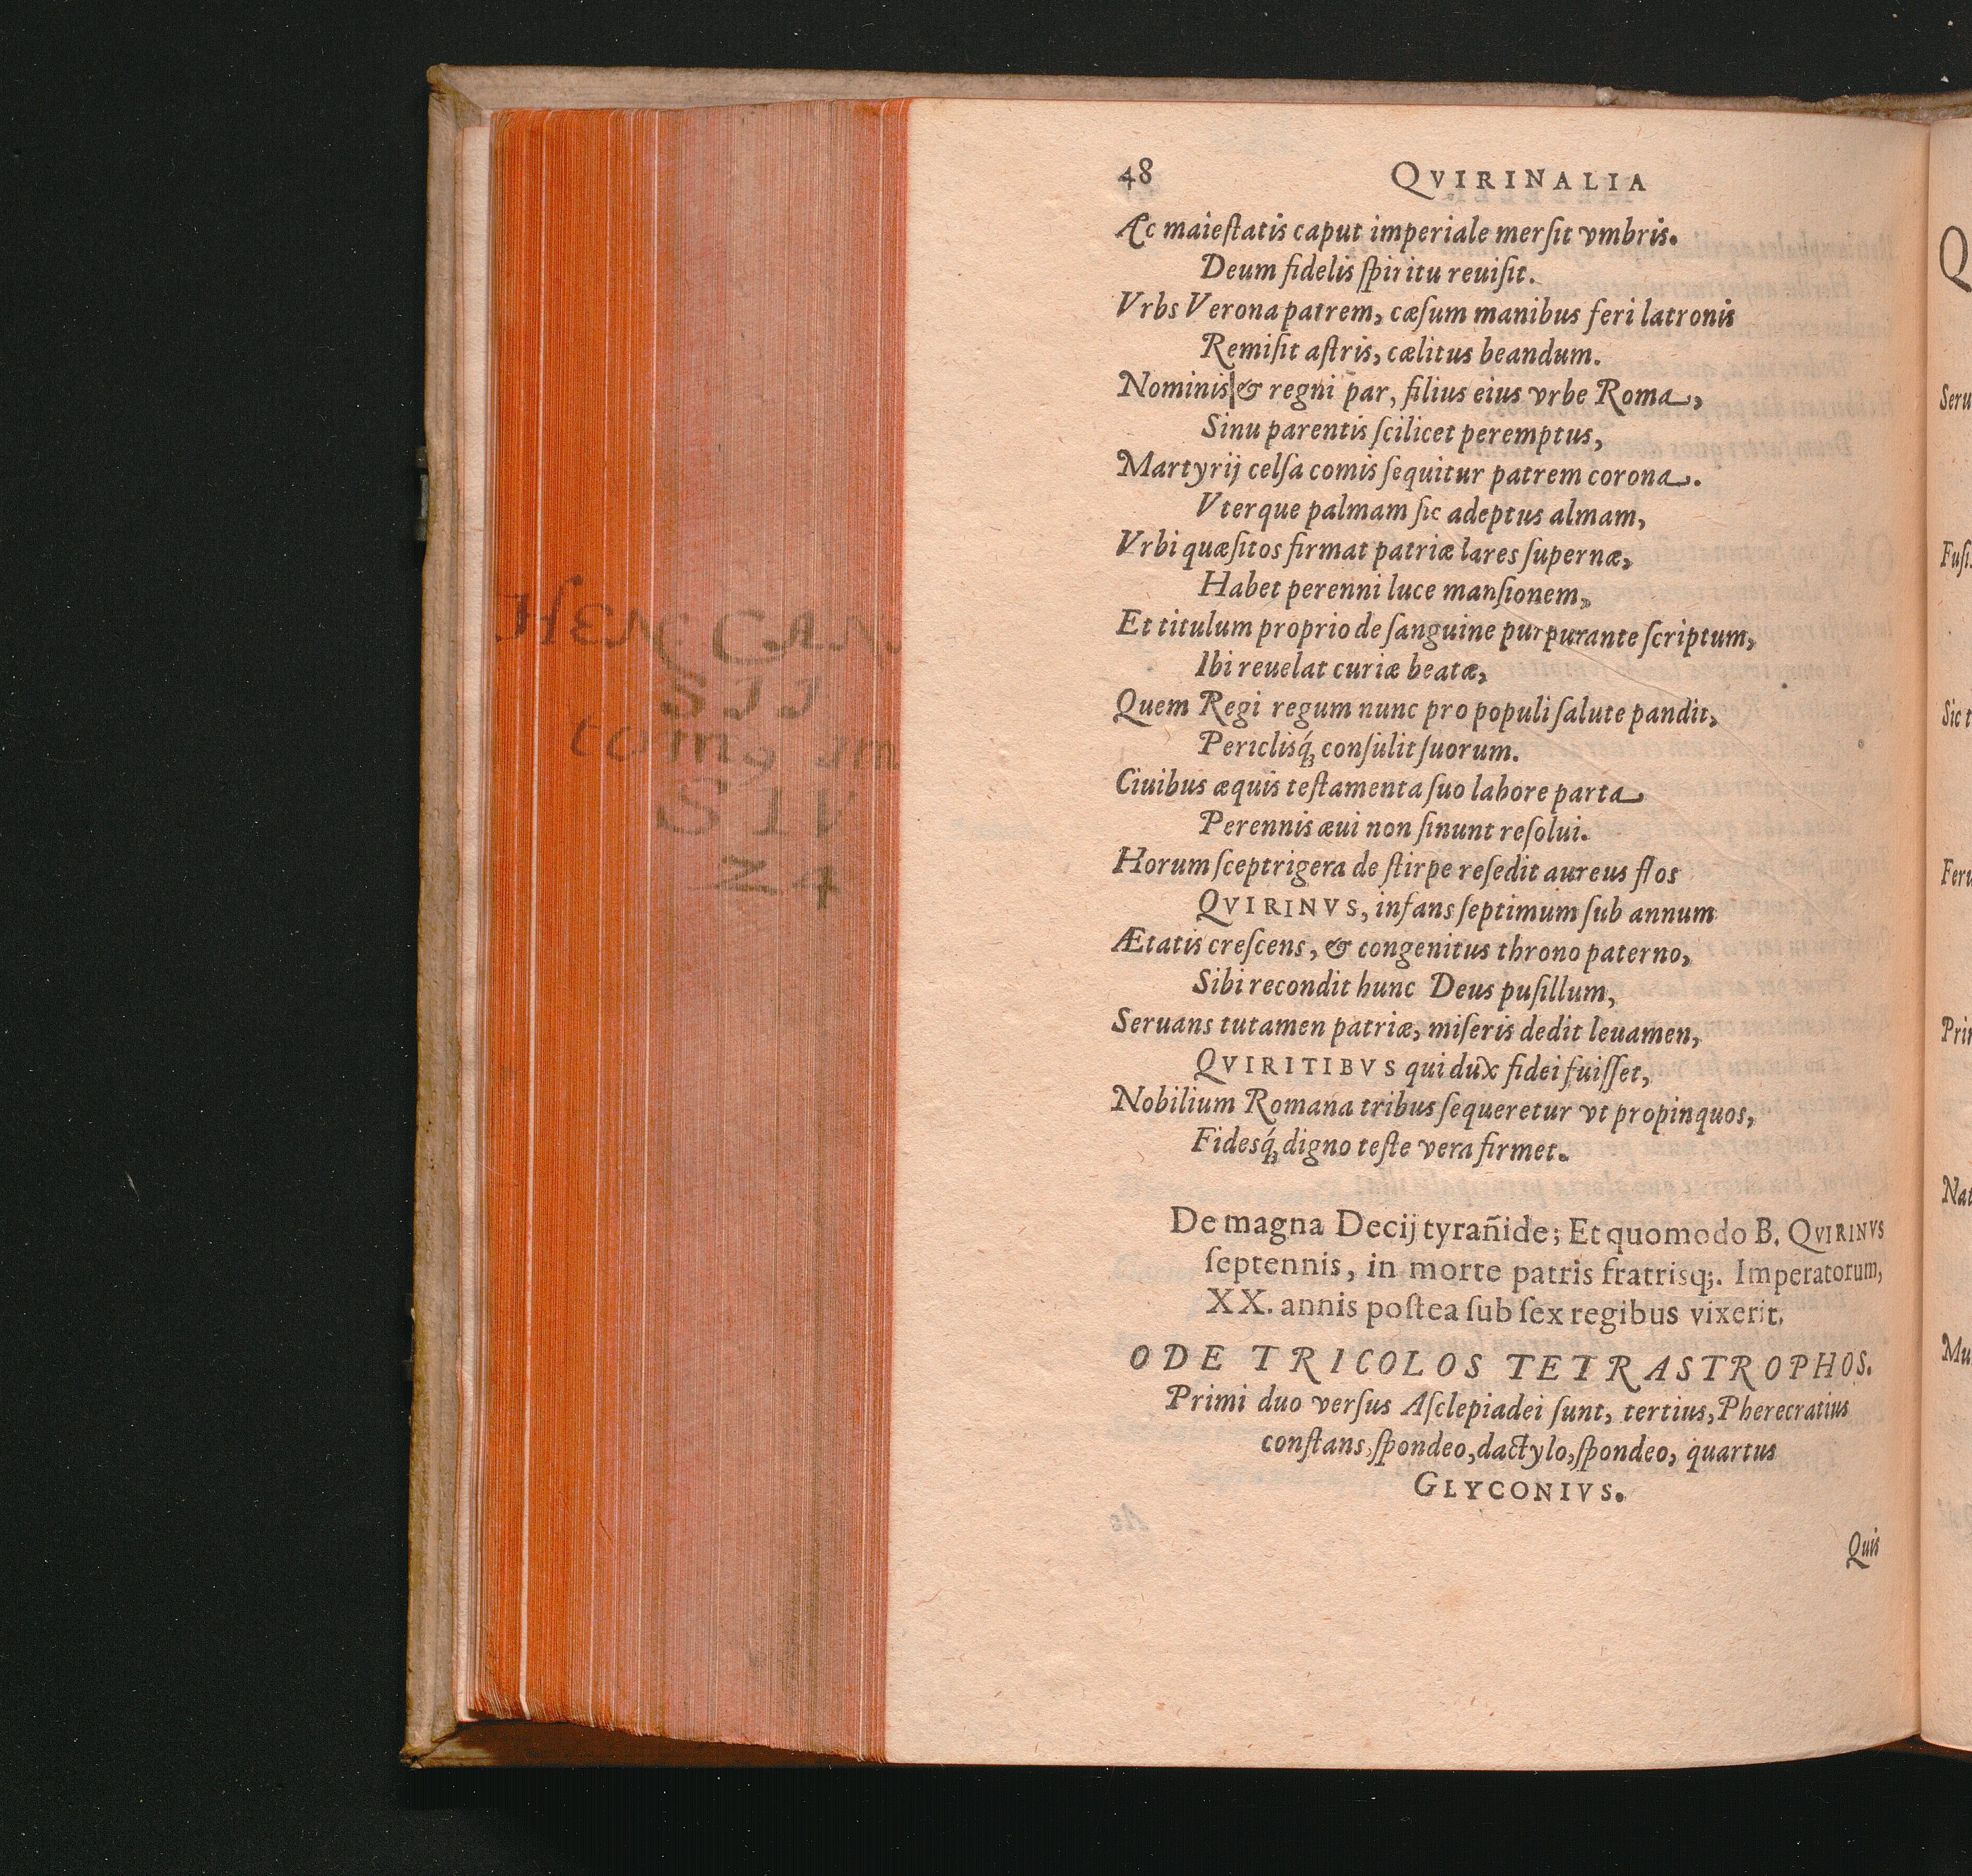 48 QVIRINALIA
Ac maieſtatis caput imperiale merſit vmbris.
Deum fidelis ſpiritu reuiſit.
Vrbs Verona patrem, cæſum manibus feri latronis
Remiſit aſtris, cælitus beandum.
Nominis & regni par, filius eius vrbe Roma,
Sinu parentis ſcilicet peremptus,
Martyrij celſa comis ſequitur patrem corona.
Vterque palmam ſic adeptus almam,
Vrbi quæſitos firmat patriæ lares ſupernæ,
Habet perenni luce manſionem,
Et titulum proprio de ſanguine purpurante ſcriptum,
Ibi reuelat curiæ beatæ,
Quem Regi regum nunc pro populi ſalute pandit,
Periclisq́ꝫ conſulit ſuorum.
Ciuibus æquis teſtamenta ſuo labore parta
Perennis æui non ſinunt reſolui.
Horum ſceptrigera de ſtirpe reſedit aureus flos
QVIRINVS, infans ſeptimum ſub annum
Ætatis creſcens, & congenitus throno paterno,
Sibi recondit hunc Deus puſillum,
Seruans tutamen patriæ, miſeris dedit leuamen,
QVIRITIBVS qui dux fidei fuiſſet,
Nobilium Romana tribus ſequeretur vt propinquos,
Fidesq́ꝫ digno teſte vera firmet.
De magna Decij tyrañide; Et quomodo B. QVIRINVS
ſeptennis, in morte patris fratrisq;. Imperatorum,
XX. annis poſtea ſub ſex regibus vixerit.
ODE TRICOLOS TETRASTROPHOS.
Primi duo verſus Aſclepiadei ſunt, tertius, Pherecratius
conſtans, ſpondeo, dactylo, ſpondeo, quartus
GLYCONIVS.
Quis
HEN CAN
SII
tomꝯ im
STV
Z4
Q
Seru
Fuſi
Sic t
Feru
Prin
Nat
Mu